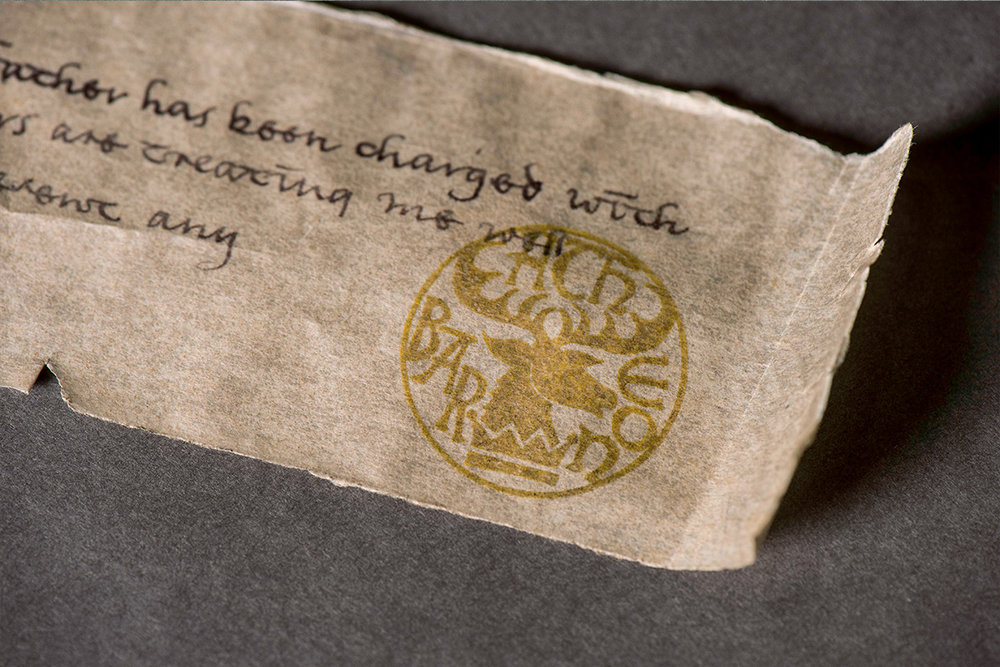 Father has been charged with
rs are treating me well
event any
BARATHEON